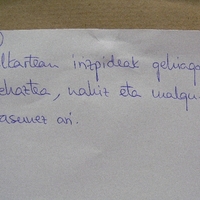 )
lkartean irizpideak gehiago
ehaztea, nahiz eta malgu
asunez ari.